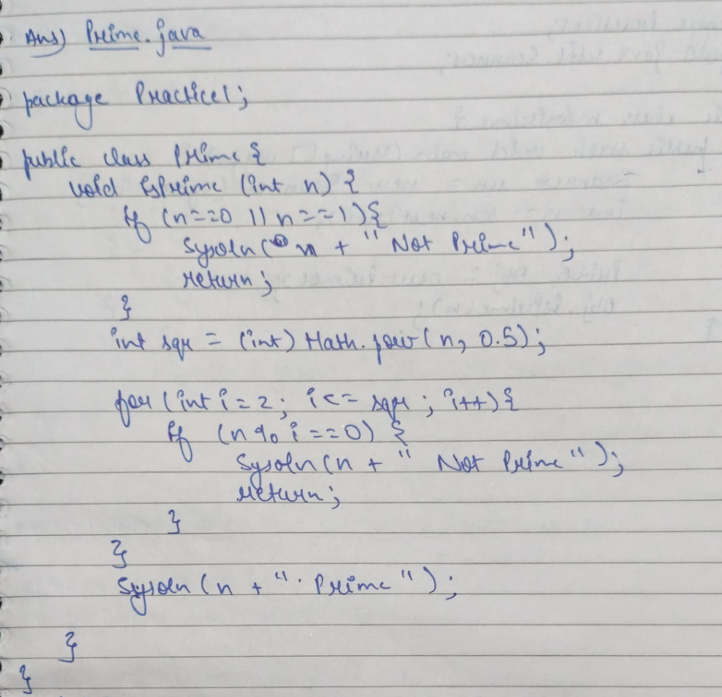 Ans) Prime.java
package Practice1;
public class Prime {
void isPrime (int n) {
if (n==0 || n==1) {
Sysoln( n + " Not Prime");
return;
}
int sqr = (int) Math.pow(n, 0.5);
for (int i=2; i<= sqr; i++) {
if (n % i ==0) {
Sysoln(n + " Not Prime");
return;
}
}
Sysoln (n + " . Prime");
}
}